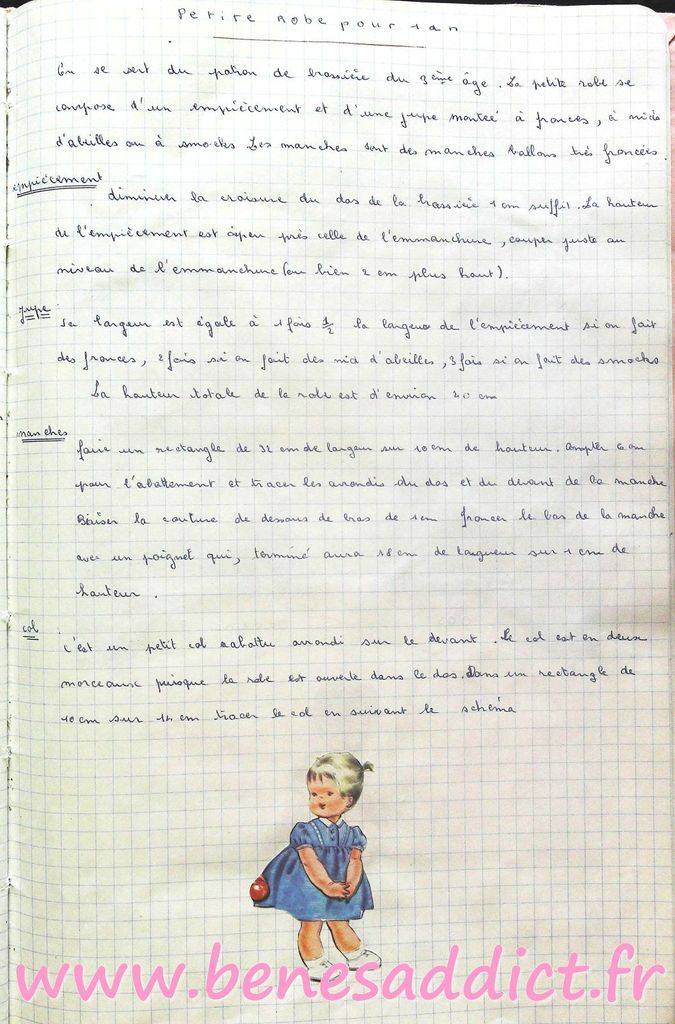 Petite Robe pour 1 an
On se sert du patron de brassière du 3ème âge. La petite robe se
compose d'un empiècement et d'une jupe monteé à fronces, à nids
d'abeilles ou à smocks Les manches sont des manches ballons très froncées.
empiècement
diminuer la croisure du dos de la brassière 1 cm suffit. La hauteur
de l'empiècement est àpeu près celle de l'emmanchure, couper juste au
niveau de l'emmanchure (ou bien 2 cm plus haut).
jupe
sa largeur est égale à 1 fois 1/2 la largeur de l'empiècement si on fait
des fronces, 2 fois si on fait des nid d'abeilles, 3 fois si on fait des smocks
La hauteur totale de la robe est d'environ cm
manches
faire un rectangle de 32 cm de largeur sur 10 cm de hauteur. compter 6 cm
pour l'abattement et tracer les arrondis du dos et du devant de la manche
Biaiser la couture de dessous de bras de 1cm froncer le bas de la manche
avec un poignet qui, terminé aura 18 cm de longueur sur 1 cm de
hauteur.
col
C'est un petit col rabattu arrondi sur le devant. Le col est en deux
morceaux puisque la robe est ouverte dans le dos. Dans un rectangle de
10 cm sur cm tracer le col en suivant le schéma
www.benesaddict.fr